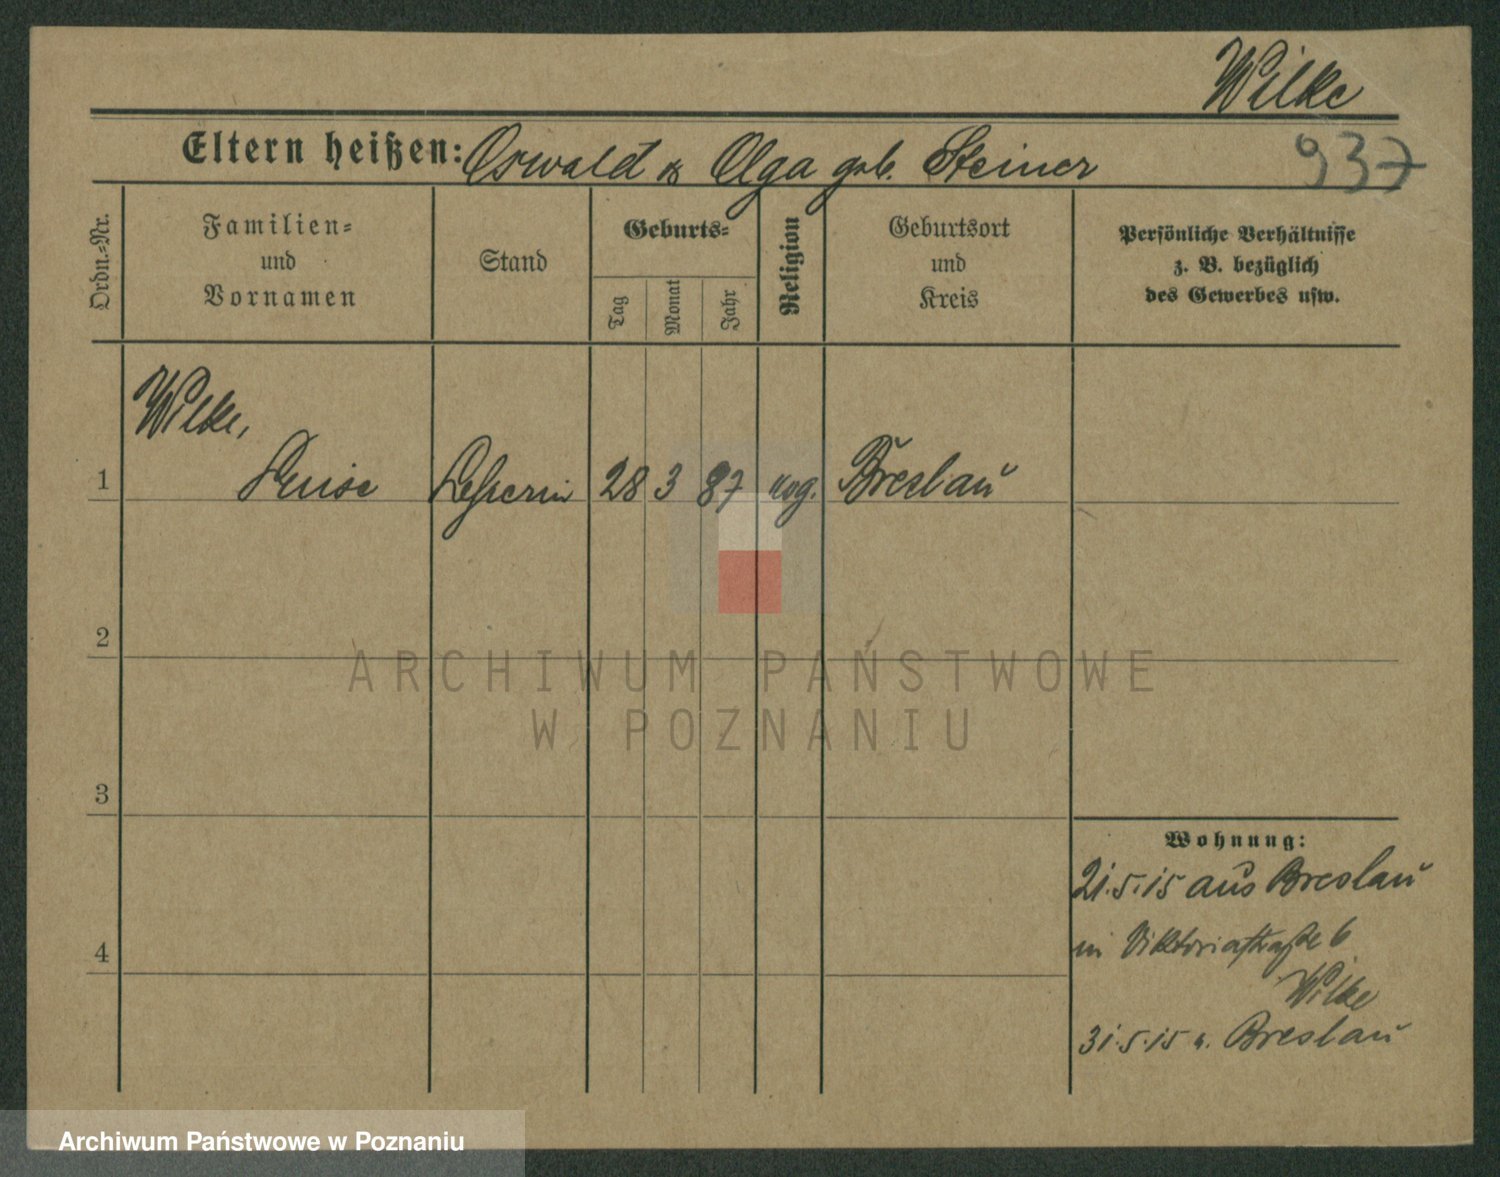 Wilke
937
Eltern heißen: Oswald & Olga geb. Steiner
Ordn.-Nr.
Familien-
und
Vornamen
Stand
Geburts-
Tag
Monat
Jahr
Religion
Geburtsort
und
Kreis
Persönliche Verhältnisse
z. B. bezüglich
des Gewerbes usw.
Wilke,
1 Luise Lehrerin 28 3 87 evg. Breslau
2
3
4
Wohnung:
21.5.15 aus Breslau
in Viktoriastraße 6
Wilke
31.5.15 n. Breslau
ARCHIWUM PAŃSTWOWE
W POZNANIU
Archiwum Państwowe w Poznaniu